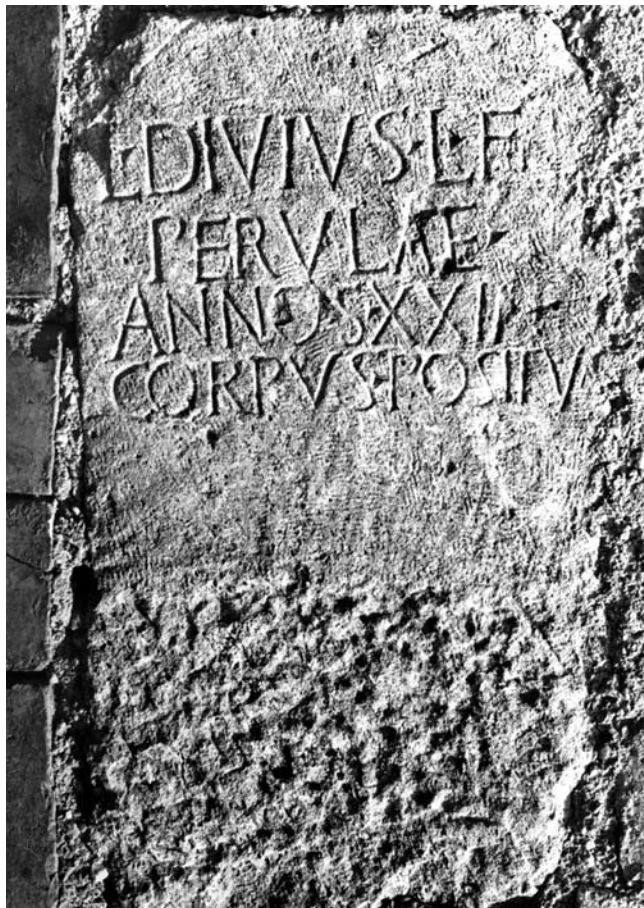 L·DIVIVS·L·F
PERVLAE
ANNOS·XXII
CORPVS·POSITV